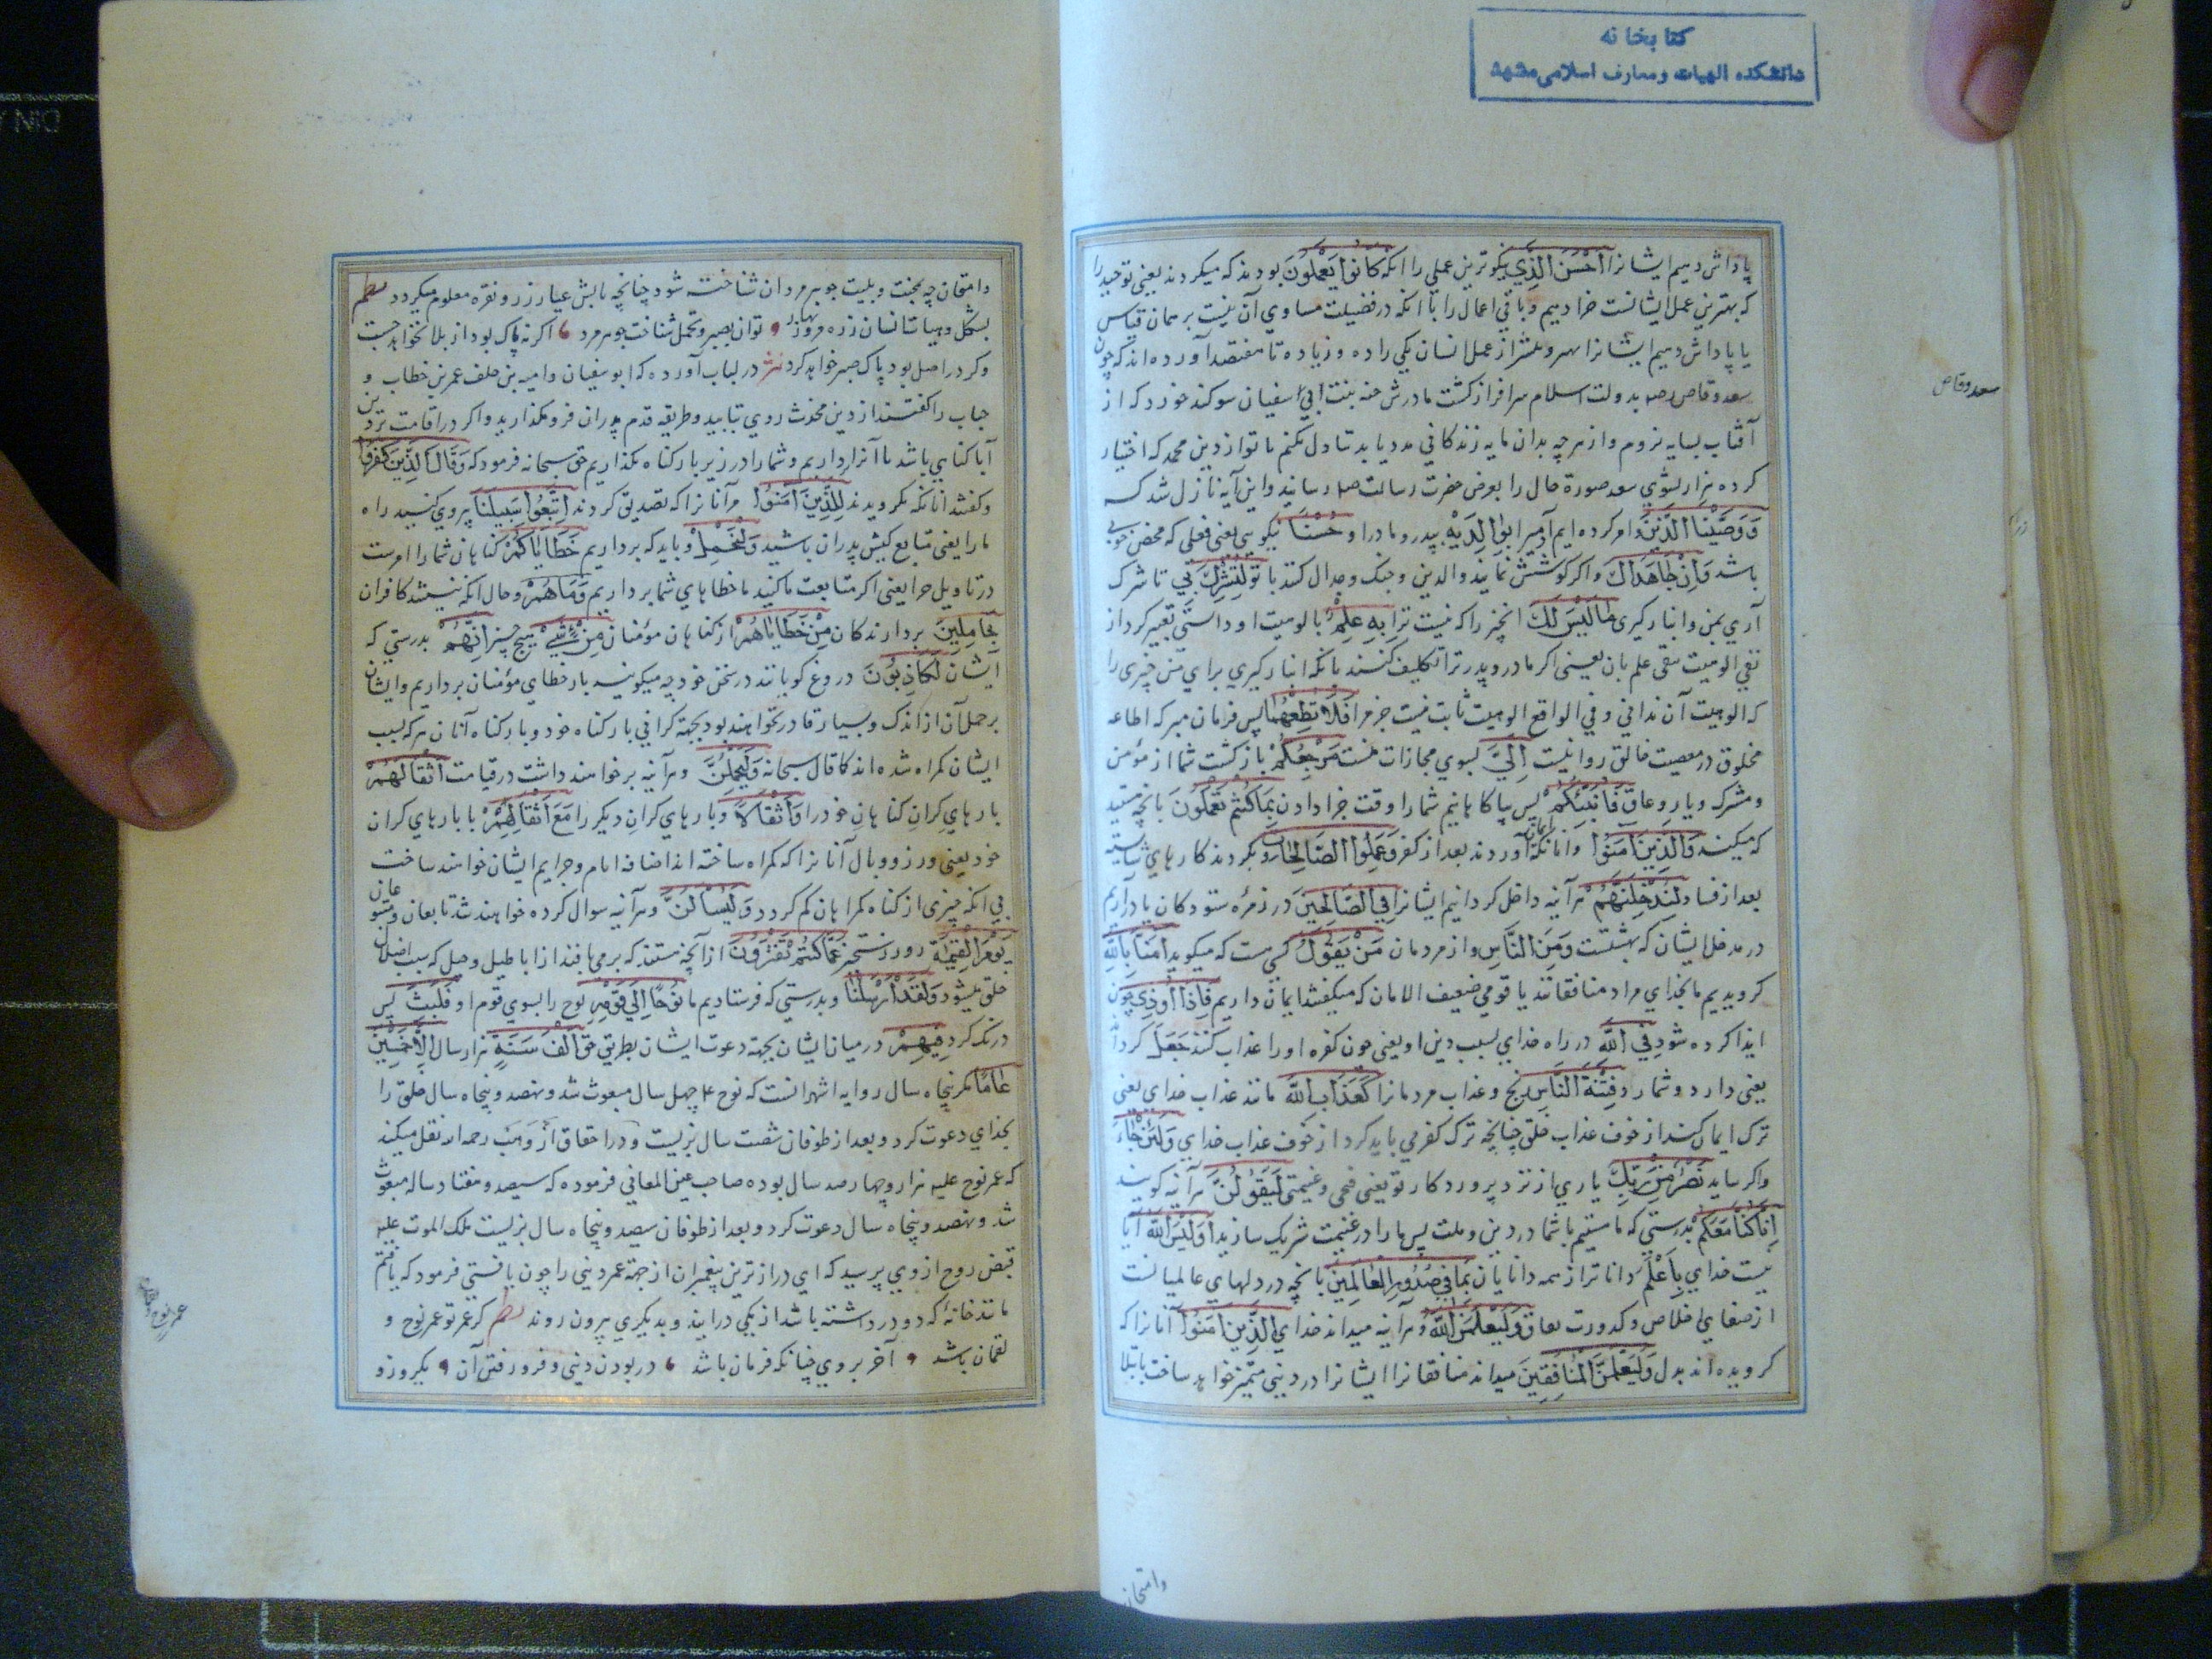 کتابخانه
دانشکده الهیات و معارف اسلامی مشهد
پاداش دهیم ایشانرا اَحْسَنَ الَّذِي نیکوترین عملي را انکه کَانُوا یَعْمَلُونَ بودند که میکردند یعنی توحید را
که بهترین عمل ایشانست جزا دهیم وباقي اعمال را با انکه در فضیلت مساوي آن نیست بر همان قیاس
یا پاداش دهیم ایشانرا از عمل انسان یکي را ده وزیاده تا هفتصد آورده اند که چون
سعد وقاص رضه بدولت اسلام سرافراز کشت مادرش حمنه بنت ابي سفیان سوکند خورد که از
آفتاب بسایه نروم واز هرچه بدان مایه زندکاني مدد یابد تناول نکنم تا تو از دین محمد که اختیار
کرده بیزار نشوي سعد صورة حال را بعرض حضرت رسالت صلم رسانید واین آیه نازل شد که
وَوَصَّیْنَا الْاِنْسَانَ وامر کرده ایم آدمیرا بِوَالِدَیْهِ بپدر ومادر او حُسْنًا نیکویی یعنی فعلي که محض خوبي
باشد وَاِنْ جَاهَدَاكَ واکر کوشش نمایند والدین وجنک وجدال کنند با تو لِتُشْرِكَ بِي تا شرک
آري بمن وانباز کیری مَا لَیْسَ لَكَ انچیز را که نیست ترا بِهِ عِلْمٌ بالوهیت او دانشي تعبیر کرد از
نفي الوهیت بنفی علم بان یعنی اکر مادر وپدر ترا تکلیف کنند بانکه انباز کیري براي من چیزی را
که الوهیت آن نداني وفي الواقع الوهیت ثابت نیست جز مرا فَلَا تُطِعْهُمَا پس فرمان مبر که اطاعه
مخلوق در معصیت خالق روا نیست اِلَيَّ بسوي مجازات منست مَرْجِعُکُمْ بازکشت شما از مؤمن
ومشرک وبار وعاق فَاُنَبِّئُکُمْ پس بیاکاهانیم شما را وقت جزا دادن بِمَا کُنْتُمْ تَعْمَلُونَ بانچه هستید
که میکنید وَالَّذِینَ اٰمَنُوا وانانکه ایمان آوردند بعد از کفر وَعَمِلُوا الصَّالِحَاتِ وبکردند کارهاي شایسته
بعد از فساد لَنُدْخِلَنَّهُمْ هرآینه داخل کردانیم ایشانرا فِي الصَّالِحِینَ در زمره ستودکان یا درآریم
در مدخل ایشان که بهشتست وَمِنَ النَّاسِ واز مردمان مَنْ یَقُولُ کسي ست که میکوید اٰمَنَّا بِاللّٰهِ
کرویدیم ما بخداي مراد منافقانند یا قومي ضعیف الایمان که میکفتند ایمان داریم فَاِذَا اُوذِيَ چون
ایذا کرده شود فِي اللّٰهِ در راه خداي بسبب دین او یعنی چون کفره او را عذاب کنند جَعَلَ کرداند
یعنی دارد وشمارد فِتْنَةَ النَّاسِ رنج وعذاب مردمانرا کَعَذَابِ اللّٰهِ مانند عذاب خداي یعنی
ترک ایمان کند از خوف عذاب خلق چنانچه ترک کفر مي باید کرد از خوف عذاب خداي وَلَئِنْ جَاءَ
واکر بیاید نَصْرٌ مِنْ رَبِّكَ یاري از نزد پروردکار تو یعنی فتحي وغنیمتي لَیَقُولُنَّ هرآینه کویند
اِنَّا کُنَّا مَعَکُمْ بدرستي که ما هستیم با شما در دین وملت پس ما را در غنیمت شریک سازید اَوَلَیْسَ اللّٰهُ آیا
نیست خداي بِاَعْلَمَ داناتر از همه دانایان بِمَا فِي صُدُورِ الْعَالَمِینَ بانچه در دلهاي عالمیانست
از صفاي اخلاص وکدورت نفاق وَلَیَعْلَمَنَّ اللّٰهُ وهرآینه میداند خداي الَّذِینَ اٰمَنُوا آنانرا که
کرویده اند بدل وَلَیَعْلَمَنَّ الْمُنَافِقِینَ میداند منافقانرا ایشانرا در دنیي متمیز خواهد ساخت بابتلا
سعد وقاص
وامتحان
وامتحان چه بمحنت وبلیت جوهر مردان شناخته شود چنانچه بآتش عیار زر ونقره معلوم میکردد نظم
توان بصبر وتحمل شناخت جوهر مرد اکرنه پاک بود از بلا نخواهد جست
وکر در اصل بود پاک صبر خواهد کرد نثر در لباب آورده که ابو سفیان وامیه بن خلف عمر بن خطاب و
خباب را کفتند از دین محدث روي بتابید وطریقه قدم پدران فرو مکذارید واکر در اقامت بر دین
آبا کناهي باشد ما آنرا برداریم وشما را در زیر بار کناه نکذاریم حق سبحانه فرمود که وَقَالَ الَّذِینَ کَفَرُوا
وکفتند انانکه نکرویدند لِلَّذِینَ اٰمَنُوا مر آنانرا که تصدیق کردند اِتَّبِعُوا سَبِیلَنَا پیروي کنید راه
ما را یعنی متابع کیش پدران ما باشید وَلْنَحْمِلْ وباید که برداریم خَطَایَاکُمْ کناهان شما را امرست
در تاویل جزا یعنی اکر متابعت ما کنید ما خطاهاي شما برداریم وَمَا هُمْ وحال انکه نیستند کافران
بِحَامِلِینَ بردارندکان مِنْ خَطَایَاهُمْ از کناهان مؤمنان مِنْ شَيْءٍ هیچ چیز اِنَّهُمْ بدرستي که
ایشان لَکَاذِبُونَ دروغ کویانند در سخن خود چه میکویند بار خطاي مؤمنان برداریم وایشان
بر حمل آن از اندک وبسیار قادر نخواهند بود بجهة کراني بار کناه خود وبار کناه آنان هر که بسبب
ایشان کمراه شده اند کما قال سبحانه وَلَیَحْمِلُنَّ وهرآینه برخواهند داشت در قیامت اَثْقَالَهُمْ
بارهاي کران کناهان خود را وَاَثْقَالًا وبارهاي کران دیکر را مَعَ اَثْقَالِهِمْ با بارهاي کران
خود یعنی وزر ووبال آنانرا که کمراه ساخته اند اضافه اثام وجرایم ایشان خواهند ساخت
بي انکه چیزي از کناه کمراهان کم کردد وَلَیُسْئَلُنَّ وهرآینه سوال کرده خواهند شد تابعان ومتبوعان
یَوْمَ الْقِیٰمَةِ روز رستخیز عَمَّا کَانُوا یَفْتَرُونَ از آنچه هستند که بر مي بافند از اباطیل وحیل که سبب اضلال
خلق میشود وَلَقَدْ اَرْسَلْنَا وبدرستي که فرستادیم ما نُوحًا اِلَي قَوْمِهِ نوح را بسوي قوم او فَلَبِثَ پس
درنک کرد فِیهِمْ در میان ایشان بجهة دعوت ایشان بطریق حق اَلْفَ سَنَةٍ هزار سال اِلَّا خَمْسِینَ
عَامًا مکر پنجاه سال روایه اشهر انست که نوح ع چهل سال مبعوث شد ونهصد وپنجاه سال خلق را
بخداي دعوت کرد وبعد از طوفان شصت سال بزیست ودر احقاق از وهب رحمه الله نقل میکند
که عمر نوح علیه هزار وچهارصد سال بوده صاحب عین المعاني فرموده که سیصد وهفتاد ساله مبعوث
شد ونهصد وپنجاه سال دعوت کرد وبعد از طوفان سیصد وپنجاه سال بزیست ملک الموت علیه
قبض روح از وي پرسید که اي درازترین پیغمبران از جهة عمر دنیي را چون یافتي فرمود که یافتم
مانند خانه که دو در داشته باشد از یکي درایند وبدیکري بیرون روند نظم کر عمر تو عمر نوح و
لقمان باشد آخر بروي چنانکه فرمان باشد در بودن دنیي وفرو رفتن آن یکروز و